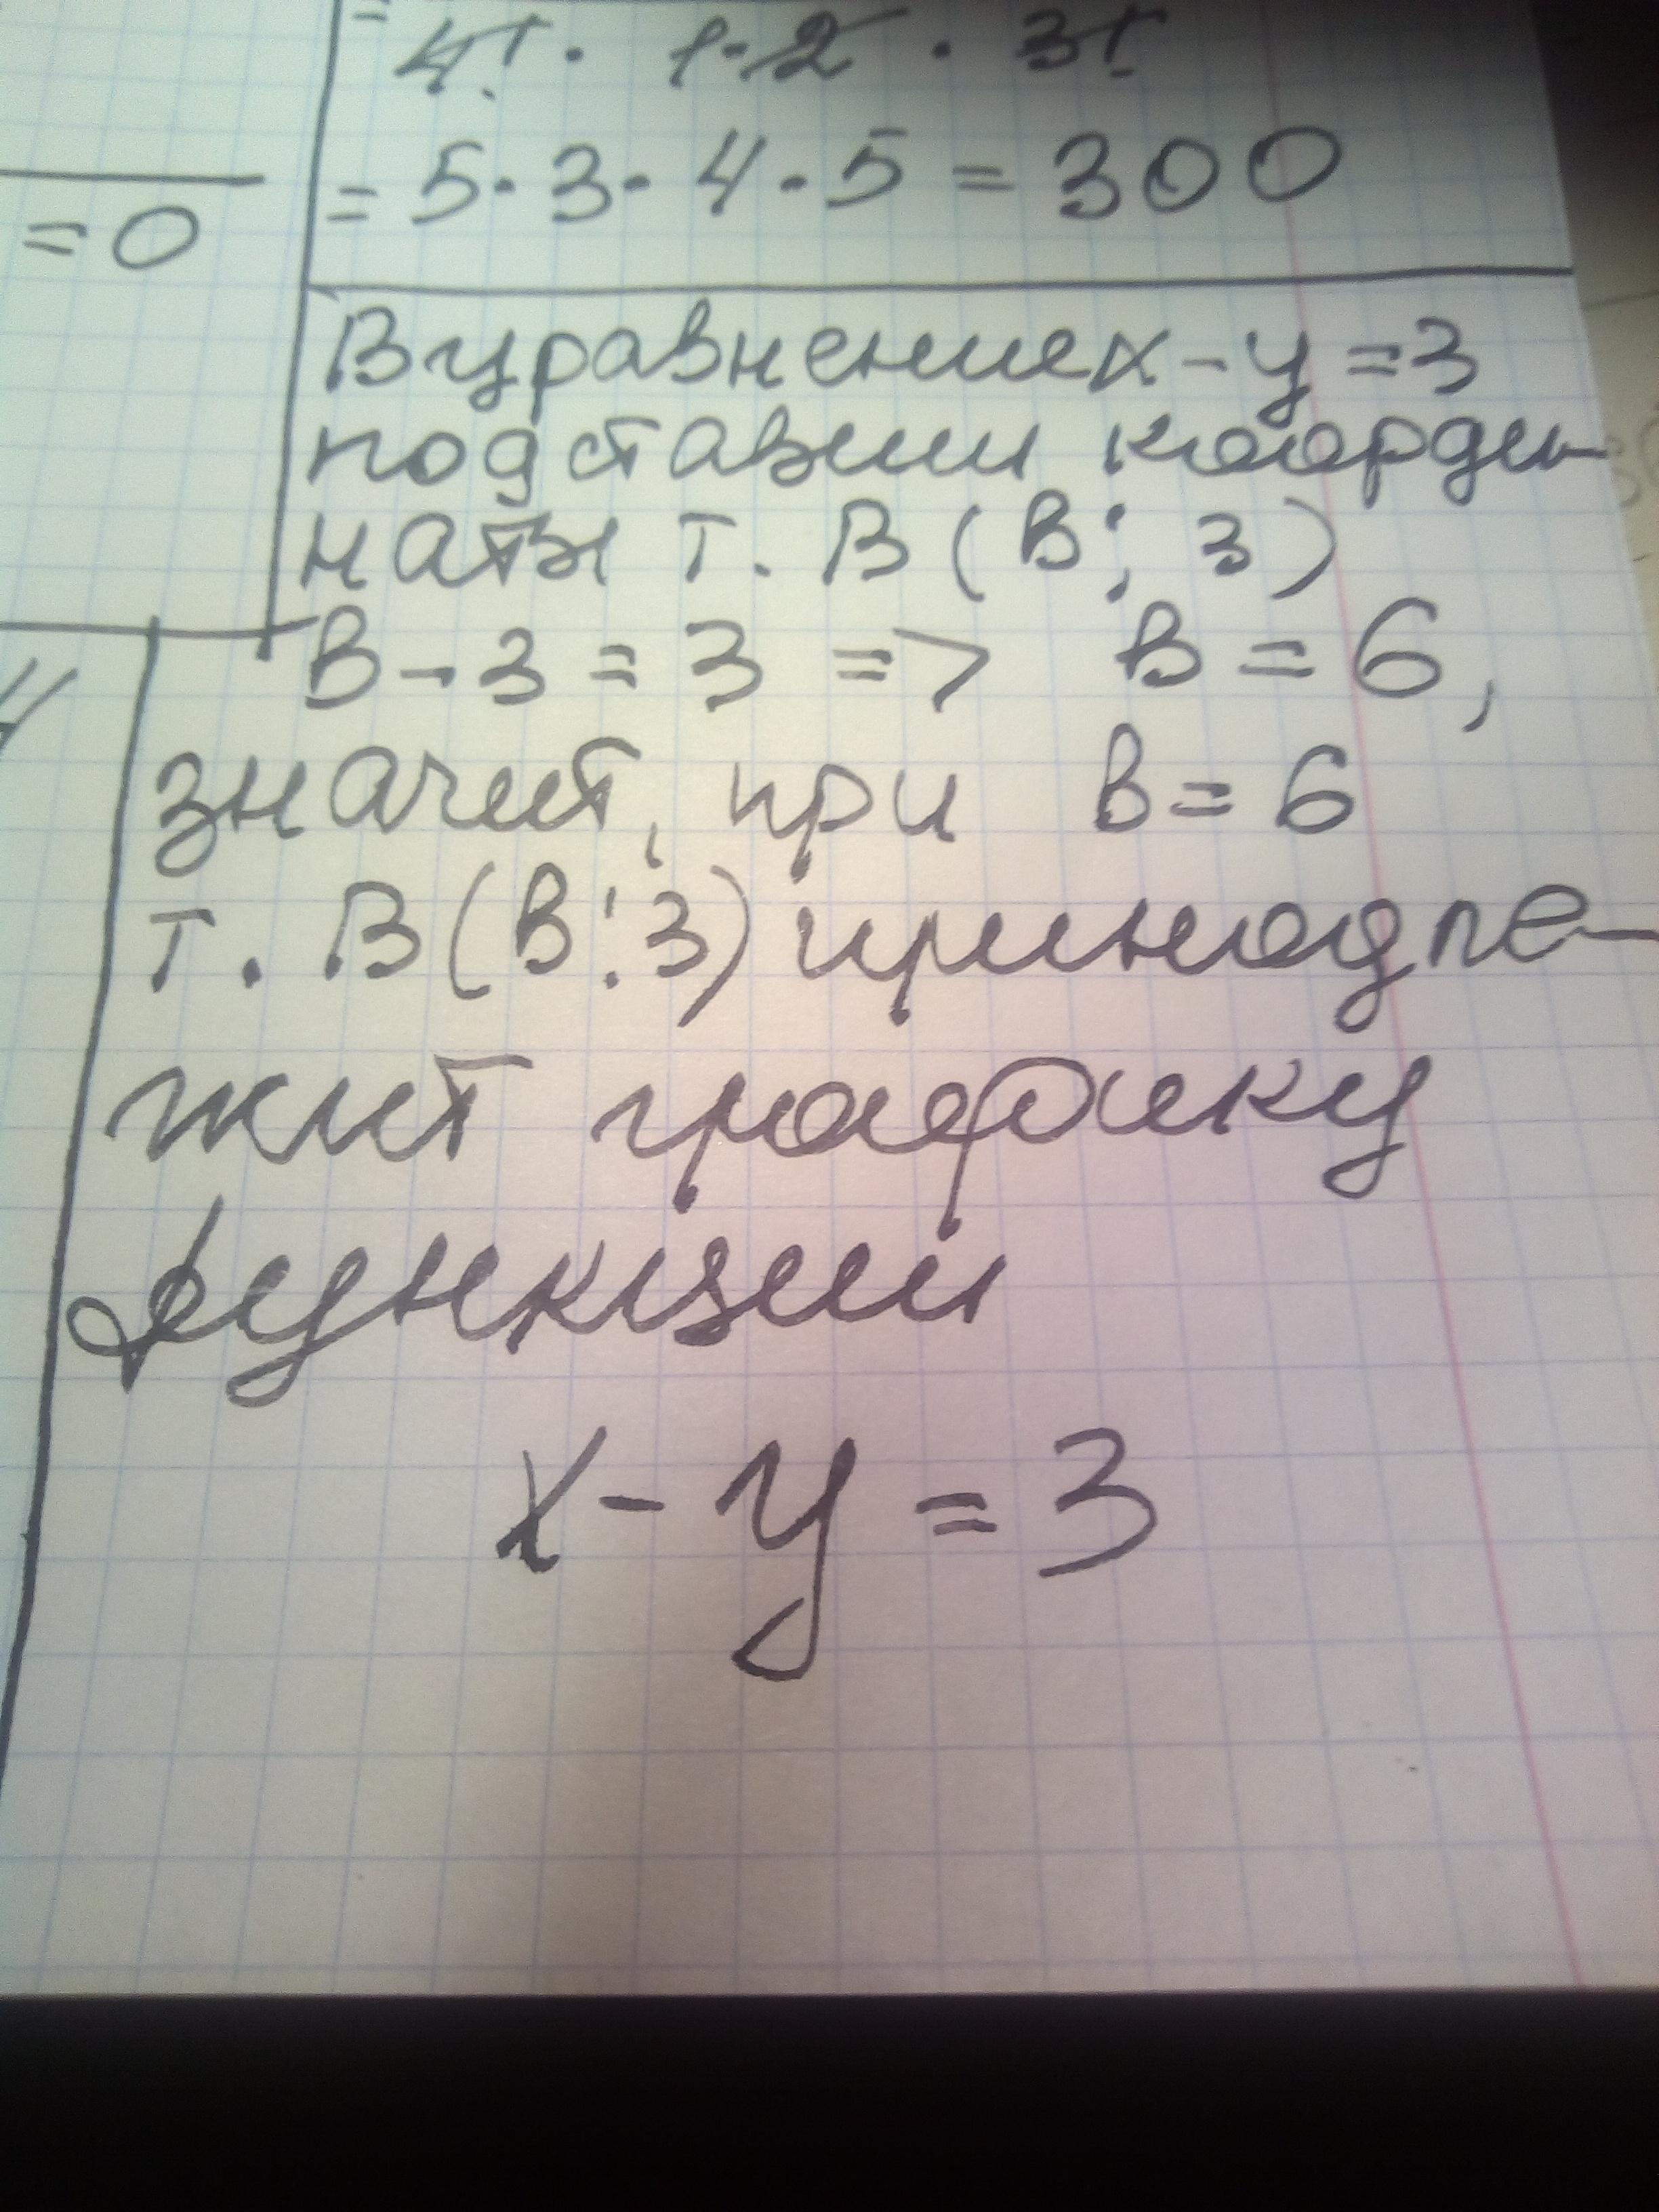 =
4! · 1·2 · 3!
= 5·3·4·5 = 300
= 0
В уравнение x-y=3
подставим коорди-
наты т. В(в; 3)
в-3=3 => в=6,
значит, при в=6
т. В(в;3) принодле-
жит графику
функции
x-y=3